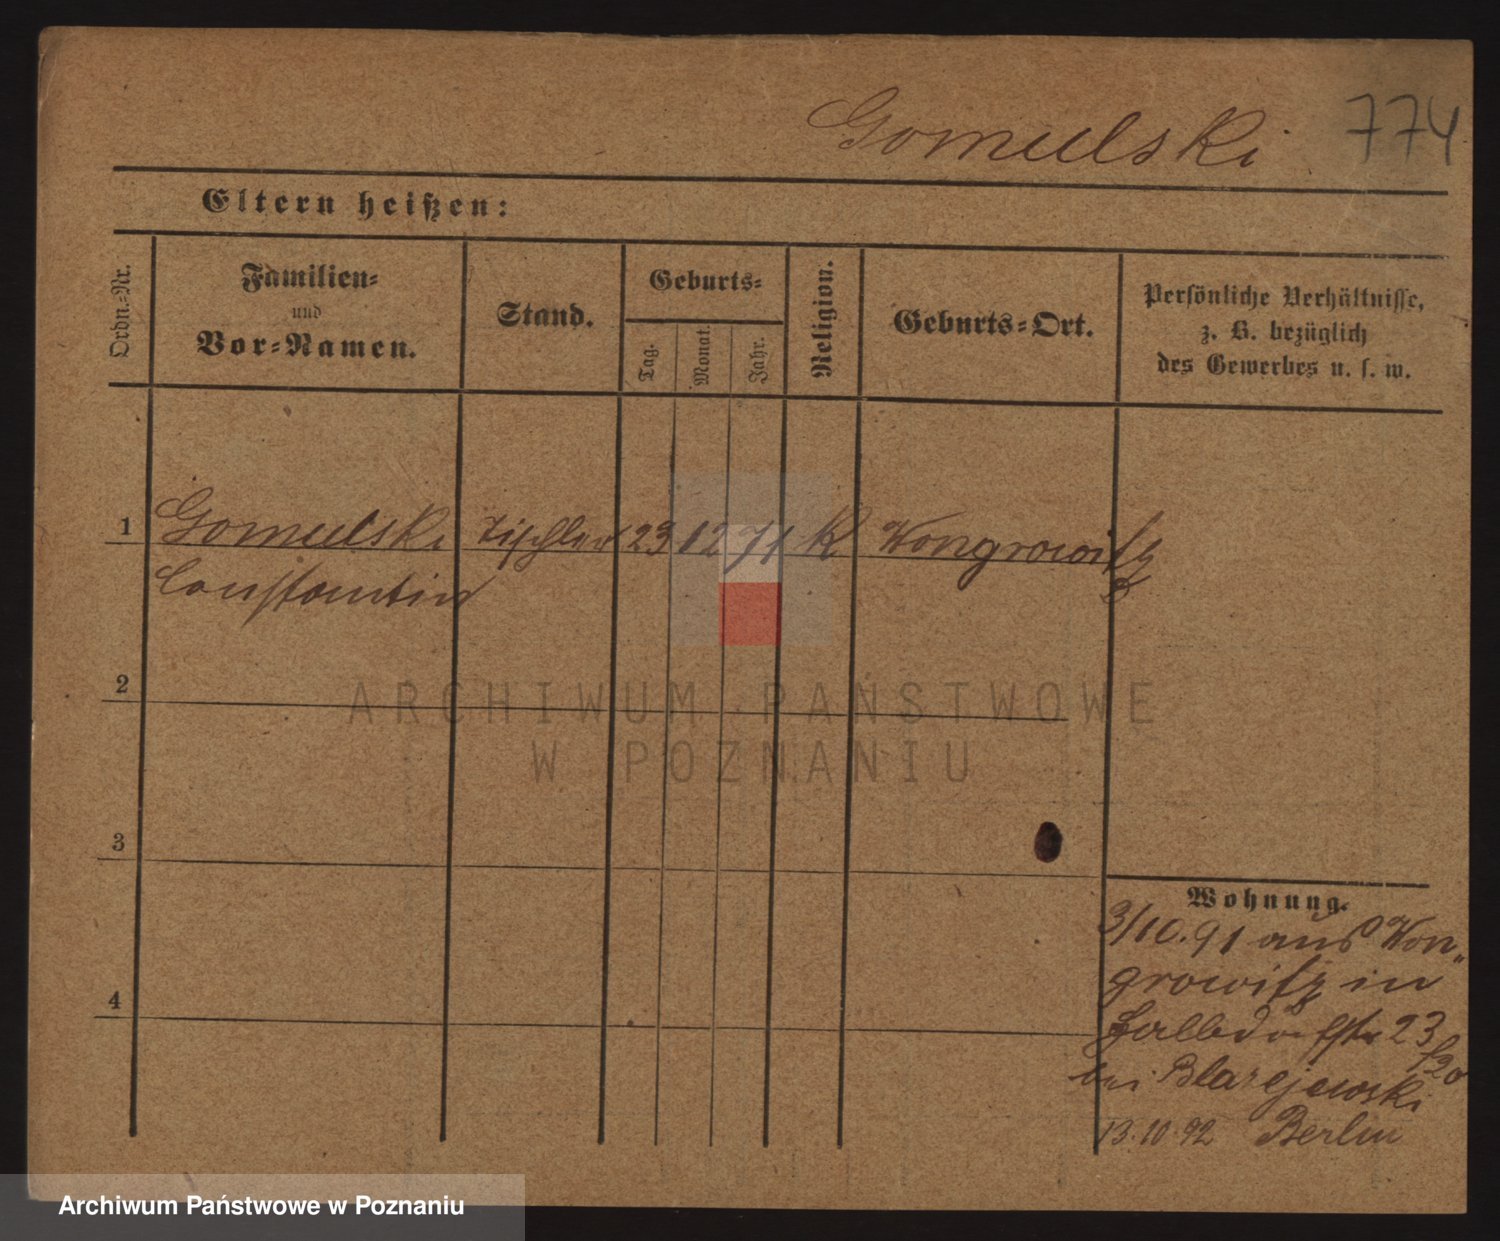 Gomulski 774
Eltern heißen:
Ordn.-Nr.
Familien-
und
Vor-Namen.
Stand.
Geburts-
Tag.
Monat.
Jahr.
Religion.
Geburts-Ort.
Persönliche Verhältnisse,
z. B. bezüglich
des Gewerbes u. s. w.
1 Gomulski Tischler 23 12 71 K Wongrowitz
Constantin
2
3
4
Wohnung.
3/10.91 aus Won„
growitz in
Halbdorfstr 23
bei Blazejewski
13.10.92 Berlin
ARCHIWUM PAŃSTWOWE
W POZNANIU
Archiwum Państwowe w Poznaniu